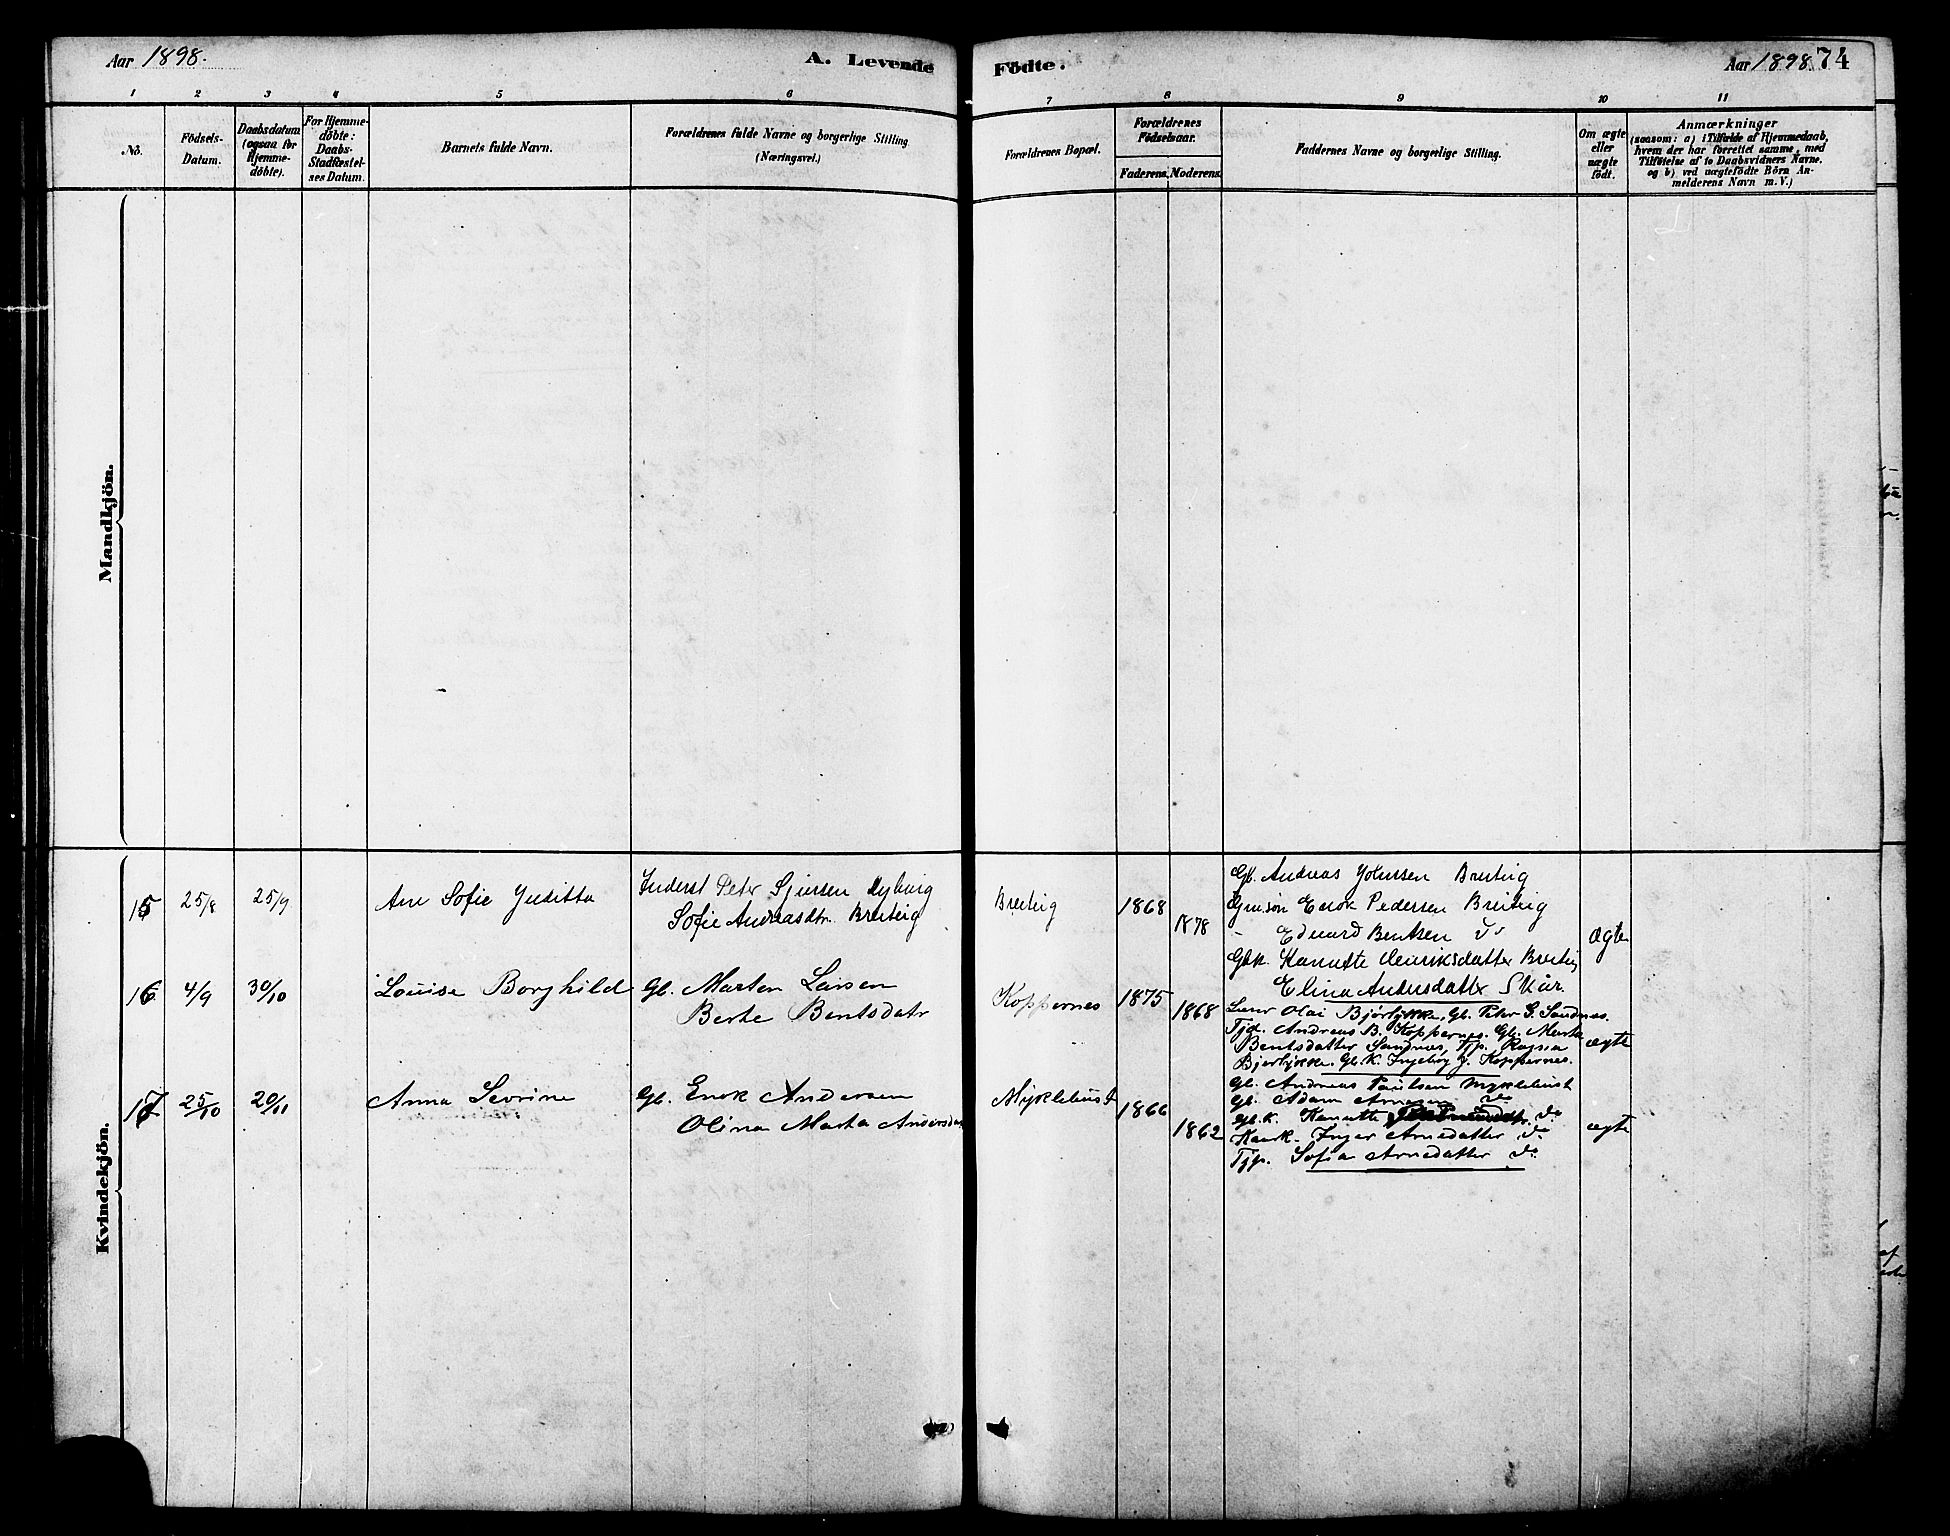 Aar 1898.
A. Levende Födte.
Aar 1898 74
1 2 3 4 5 6 7 8 9 10 11
No.
Födsels-Datum.
Daabsdatum (ogsaa for Hjemme-döbte).
For Hjemme-döbte: Daabs-Stadfæstel-ses Datum.
Barnets fulde Navn.
Forældrenes fulde Navne og borgerlige Stilling (Næringsvei.)
Forældrenes Bopæl.
Forældrenes Födselsaar.
Faderens. Moderens.
Faddernes Navne og borgerlige Stilling.
Om ægte eller uægte födt.
Anmærkninger
(saasom: a) i Tilfælde af Hjemmedaab,
hvem der har forrettet samme, med
Tilföielse af to Daabsvidners Navne,
og b) ved uægtefödte Börn An-
melderens Navn m. V.)
Mandkjön.
Kvindekjön.
15 25/8 25/9 Ane Sofie Juditta
Inderst Peter Sjursen
Sofie Andreasdtr. Breiteig
Breiteig 1868 1878
Gb. Andreas Johnssen Breiteig
Enok Pedersen Breiteig
- Edvard Bentsen do
Gbk. Hanutte Henriksdatter Breiteig
Elina Andersdatter Skår
ægte
16 4/9 30/10 Louise Borghild
Gb. Marton Larsen
Berte Bentsdatr
Koppernes 1875 1868
Olai Bjørlykke, Gb. Peter G. Sandnes.
Tjd. Andreas B. Koppernes. Gb. Marta
Bentsdatter Sandnes, Tjp. Ragna
Bjørlykke. Gb.K. Ingebörg J. Koppernes.
ægte
17 25/10 20/11 Anna Sevrine
Gb. Enok Andersen
Olina Marta Andersdatr
Myklebust 1866 1862
Gb. Andreas Paulsen Myklebust
Gb. Adam Arnesen do
Gb.K. Hanutte do
Inger Arnedatter do
Tjp. Sofia Arnedatter do
ægte